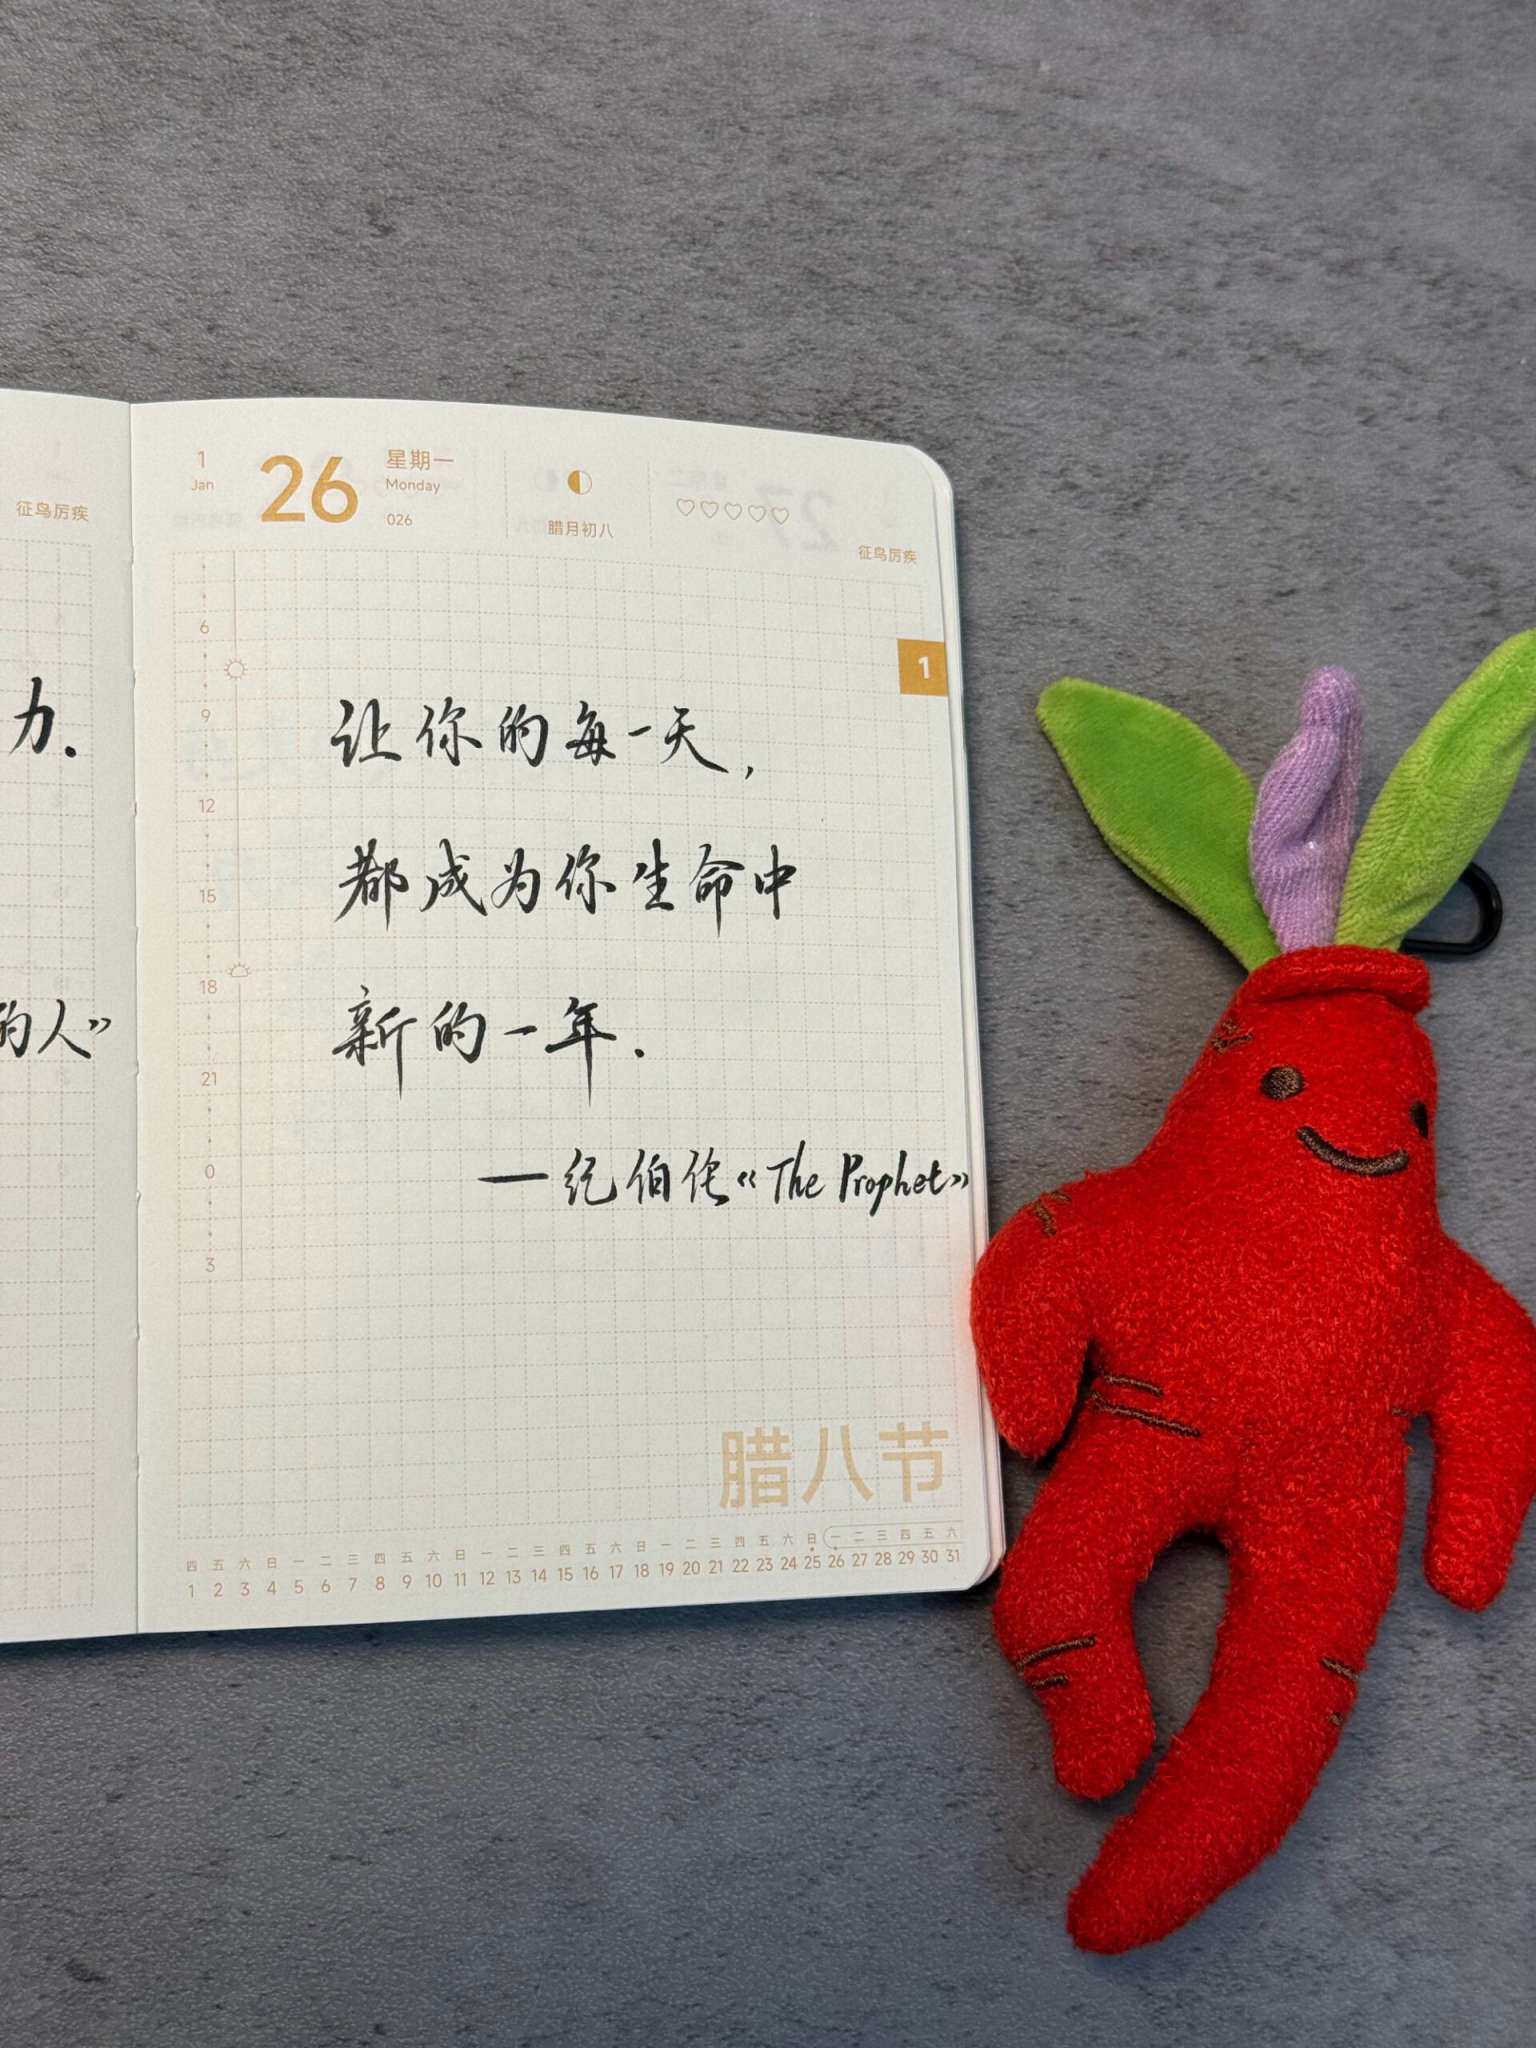 征鸟厉疾
力.
的人》
1
Jan
26
星期一
Monday
026
腊月初八
征鸟厉疾
1
6
9
12
15
18
21
0
3
让你的每一天,
都成为你生命中
新的一年.
—纪伯伦《The Prophet》
腊八节
四 五 六 日 一 二 三 四 五 六 日 一 二 三 四 五 六 日 一 二 三 四 五 六 日 一 二 三 四 五 六
1 2 3 4 5 6 7 8 9 10 11 12 13 14 15 16 17 18 19 20 21 22 23 24 25 26 27 28 29 30 31